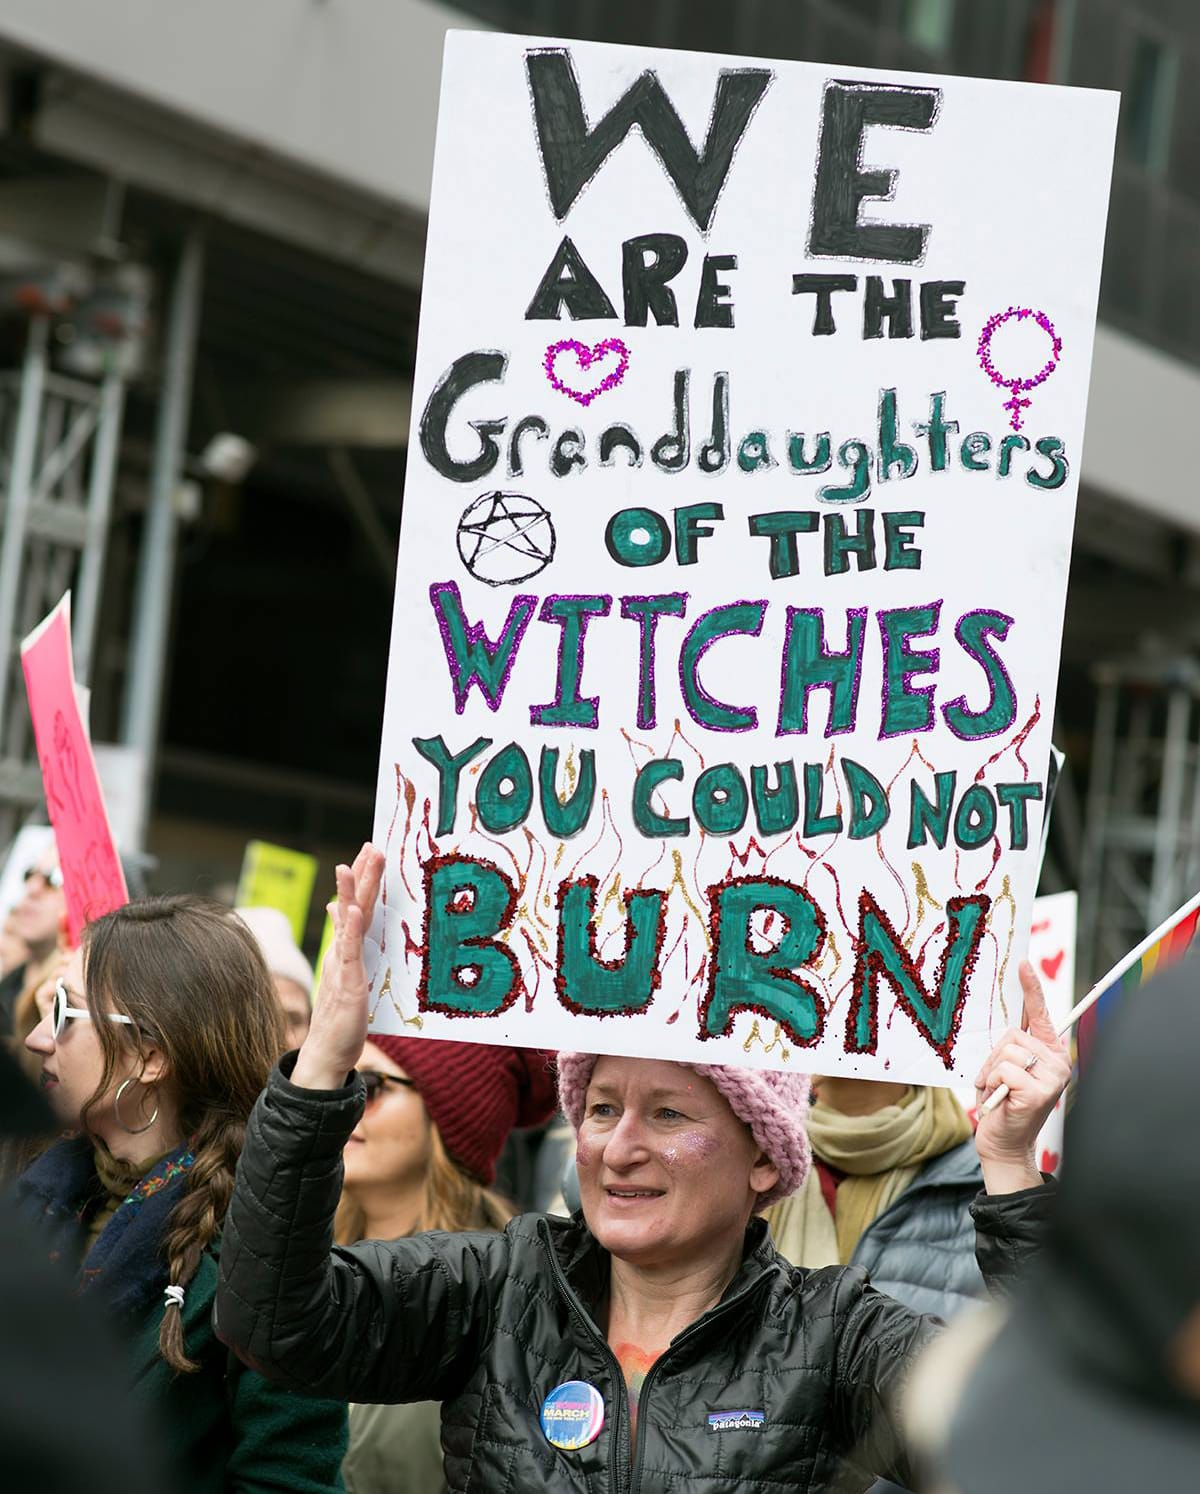 WE
ARE THE
Granddaughters
OF THE
WITCHES
YOU COULD NOT
BURN
MARCH
patagonia